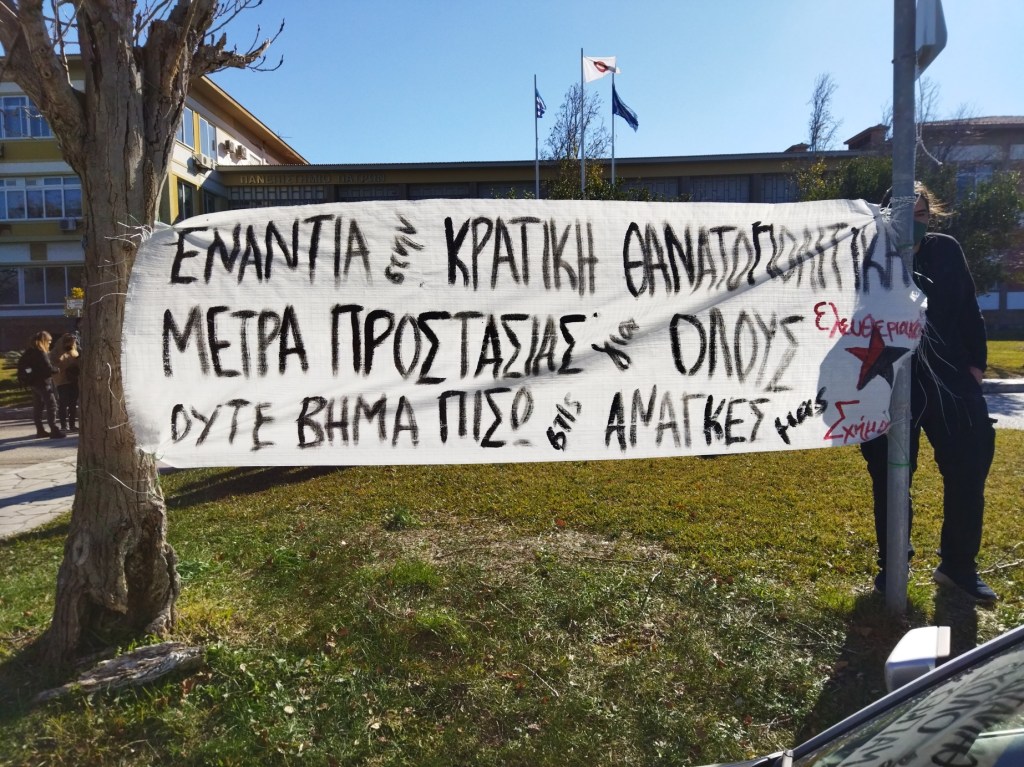 ΠΑΝΕΠΙΣΤΗΜΙΟ ΠΑΤΡΩΝ
ΕΝΑΝΤΙΑ στην ΚΡΑΤΙΚΗ ΘΑΝΑΤΟΠΟΛΙΤΙΚΗ
ΜΕΤΡΑ ΠΡΟΣΤΑΣΙΑΣ για ΟΛΟΥΣ
ΟΥΤΕ ΒΗΜΑ ΠΙΣΩ στις ΑΝΑΓΚΕΣ μας
Ελευθεριακό
Σχήμα